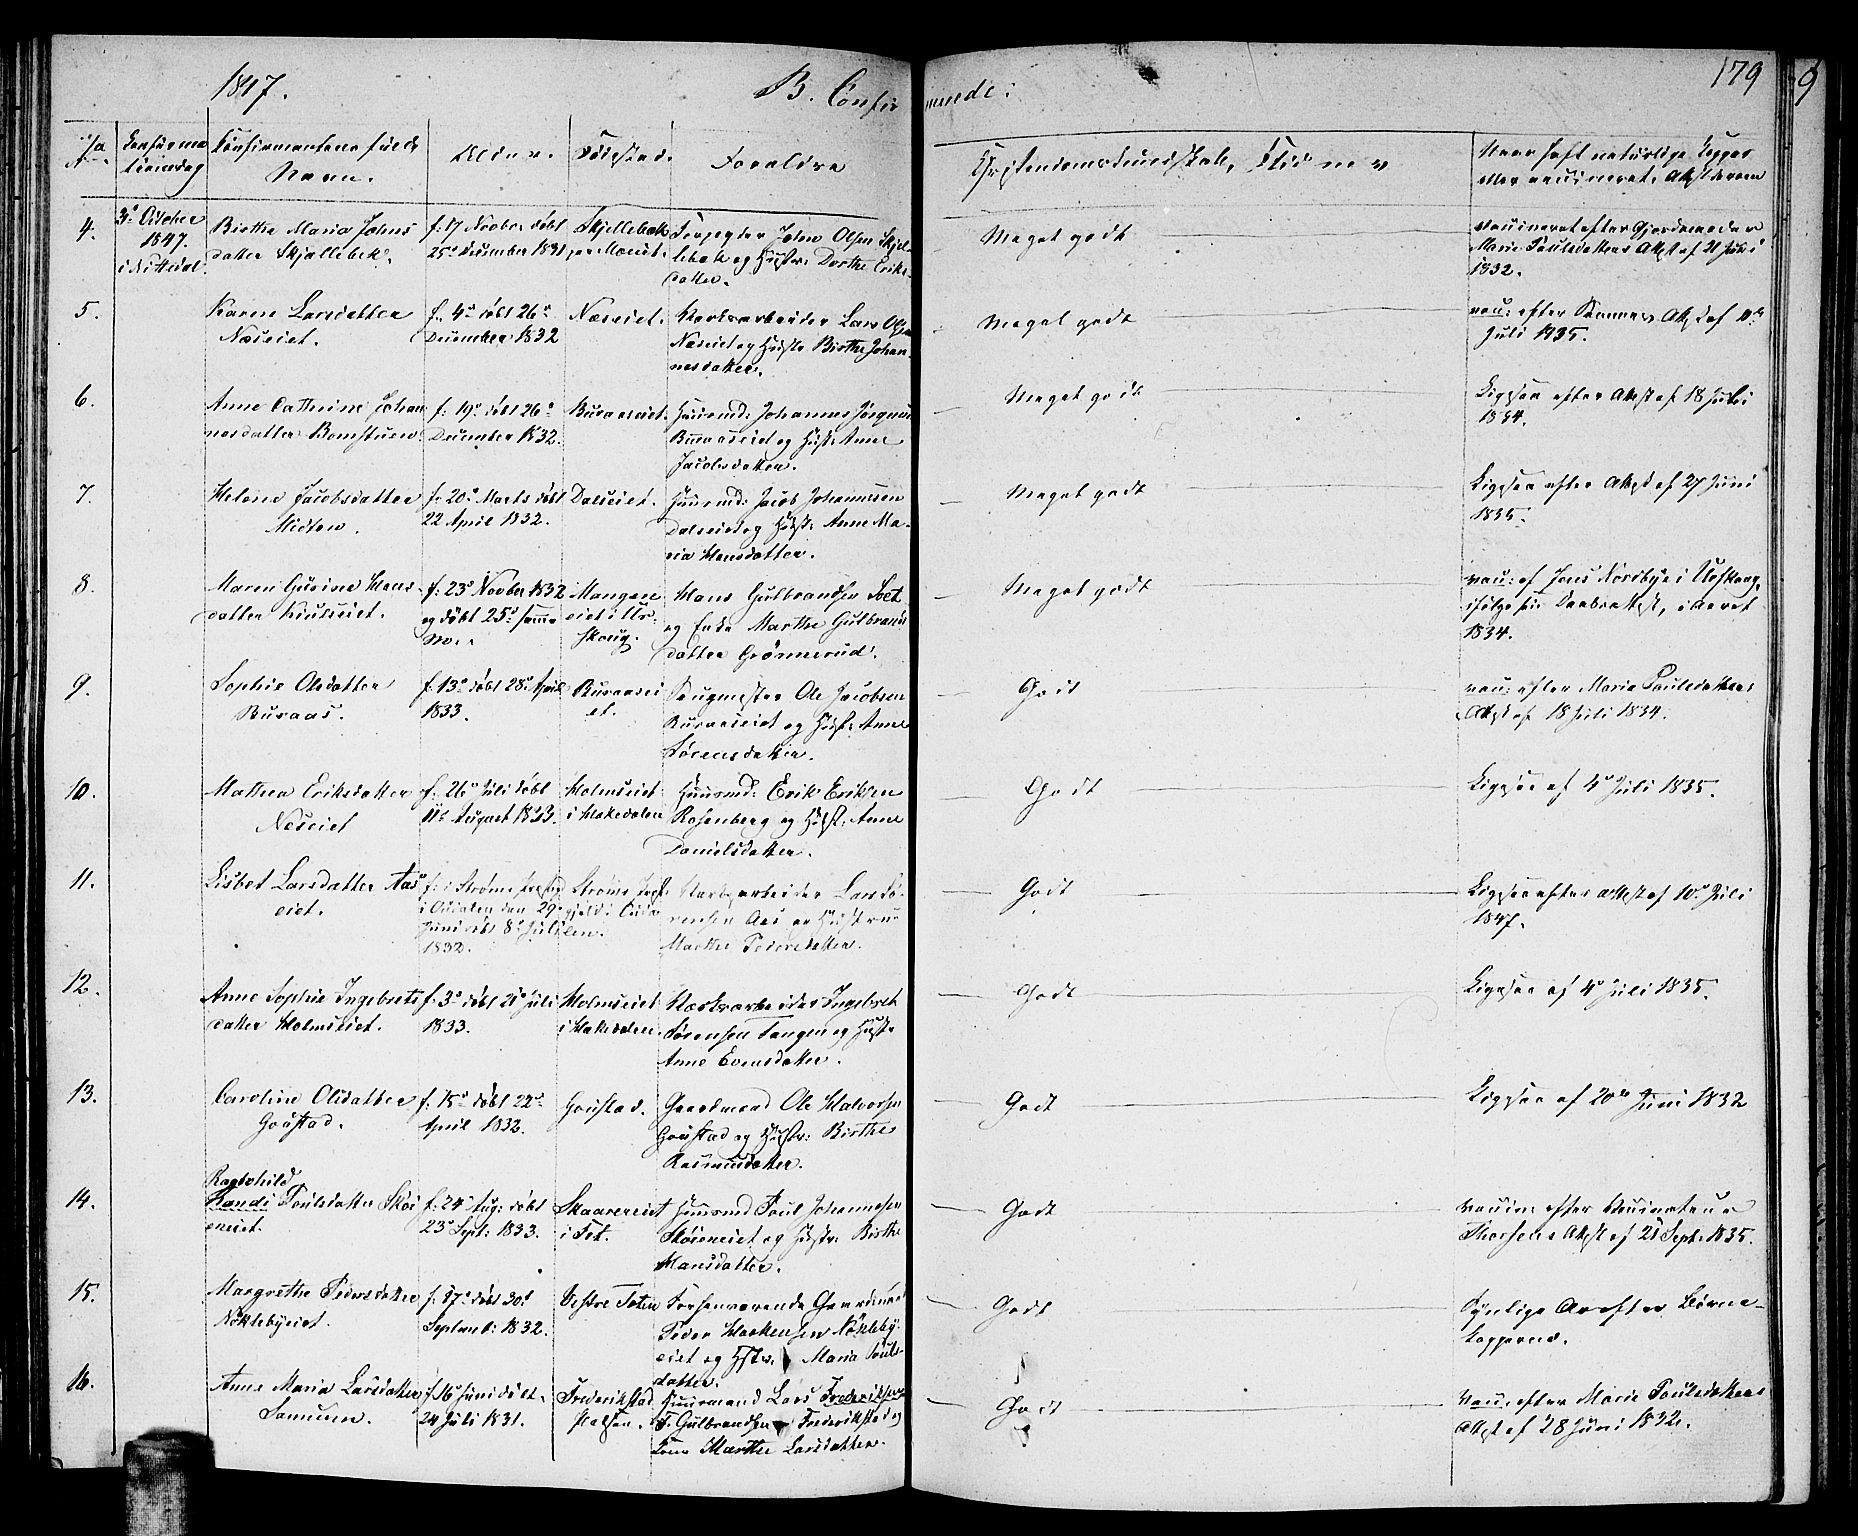 1847.
B. Confirmerede.
179
9
Confirma
tionsdag
Confirmantens fulde
Navn.
Alder.
Fødested.
Forældre
Christendomskundskab, Flid m. v
Naar haft naturlige Kopper
eller vaccineret. Attest derom
4.
3die October
1847.
i Nittedal
Birthe Maria Johns
datter Skjællebek.
f. 17 Novbr. døbt
25de December 1831
Skjellebæk
Forpagter John Olsen Skjel
lebæk og Hustr: Dorthe Eriks-
datter.
Meget godt
vaccineret efter Gjordemoder
Marie Paulsdatters Attest af 21 Juli
1832.
5.
Karen Larsdatter
Næseiet.
f. 4de døbt 26de
December 1832
Næseiet.
Værksarbeider Lars Olsen
Næseiet og Hustr Birthe Johan-
nesdatter.
Meget godt
vac: efter Attest af
Juli 1835.
6.
Anne Cathrine Johan
nesdatter Bomstuen
f. 19de døbt 26de
December 1832.
Buraaseiet.
Huusmd: Johannes Jørgensen
Buraaseiet og Hustr Anne
Jacobsdatter.
Meget godt
Ligesaa efter Attest af 18 Juli
1834.
7.
Helene Jacobsdatter
Moten.
f. 20de Marts døbt
22 April 1832.
Dalseiet.
Huusmd: Jacob Johannesen
Dalseiet og Hustr: Anne Ma-
ria Hansdatter.
Meget godt
Ligesaa efter Attest af 27 Juni
1835.
8.
Maren Gurine Hans
datter
f. 23de Novber 1832
og døbt 25de samme
M..
Mangen
eiet i Ur-
skoug.
Hans Gulbrandsen Soet
og Enke Marthe Gulbrands
datter Grønnerud.
Meget godt
vac: af Jens Nordbye i Urskoug,
ifølge sin Daabsattest, i Aaret
1834.
9.
Sophie Olsdatter
Buraas.
f. 13de døbt 28de April
1833.
Buraasei
et.
Saugmester Ole Jacobsen
Buraaseiet og Hust: Anne
Sørensdatter.
Godt
vac: efter Marie Paulsdatters
Attest af 18 Juli 1834.
10.
Mathea Eriksdatter
Næseiet
f. 26de Juli døbt
11te August 1833.
Holmseiet
i Hakedalen
Huusmd: Erik Eriksen
Rosenberg og Hust: Anne
Danielsdatter.
Godt
Ligesaa af 4de Juli 1835.
11.
Lisbet Larsdatter Aas
eiet.
f. i Strøms Præstegj
i Odalen den 29de
Juni døbt 8de Juli
1832.
Strøms Præste
gjeld i Oda
len.
Værksarbeider Lars Sø-
rensen Aas og Hustrue
Marthe Pedersdatter.
Godt
Ligesaa efter Attest af 10de Juli
1847.
12.
Anne Sophie Ingebrets
datter Holmseiet.
f. 3de døbt 21de Juli
1833.
Holmseiet
i Hakedalen.
Værksarbeider Ingebret
Sørensen Tangen og Hustr
Anne Evensdatter.
Godt
Ligesaa af 4de Juli 1835.
13.
Caroline Olsdatter
Goustad.
f. 15de døbt 22de
April 1832.
Goustad.
Gaardmand Ole Halvorsen
Goustad og Hustr: Birthe
Rasmusdatter.
Godt
Ligesaa af 20de Juni 1832
14.
Ragnhild
Randi Poulsdatter Skøi
eneiet.
f. 24de Aug: døbt
23de Sept: 1833.
Skaarereiet
i Fet.
Huusmd Poul Johannesen
Skøieneiet og Hustr: Birthe
Hansdatter.
Godt
vaccin: efter Vaccinateur
Thorsens Attest af 21 Sept. 1835.
15.
Margrethe Pedersdatter
Nøklebyeiet.
f. 17de døbt 30de
Septemb: 1832.
Vestre Toten
Forhenværende Gaardmand
Peder Haakensen Nøkleby
eiet og Hstr. Maria Pouls-
datter.
Godt
Synlige Ar efter Børne-
kopperne.
16.
Anne Maria Larsdatter
f. 16de Juni døbt
24 Juli 1831.
Frederikstad
Huusmand Lars Frederiksen
F. Gulbrandsen Frederikstad og
Marthe Larsdatter.
Godt
vac: efter Marie Poulsdatters
Attest af 28 Juni 1832.